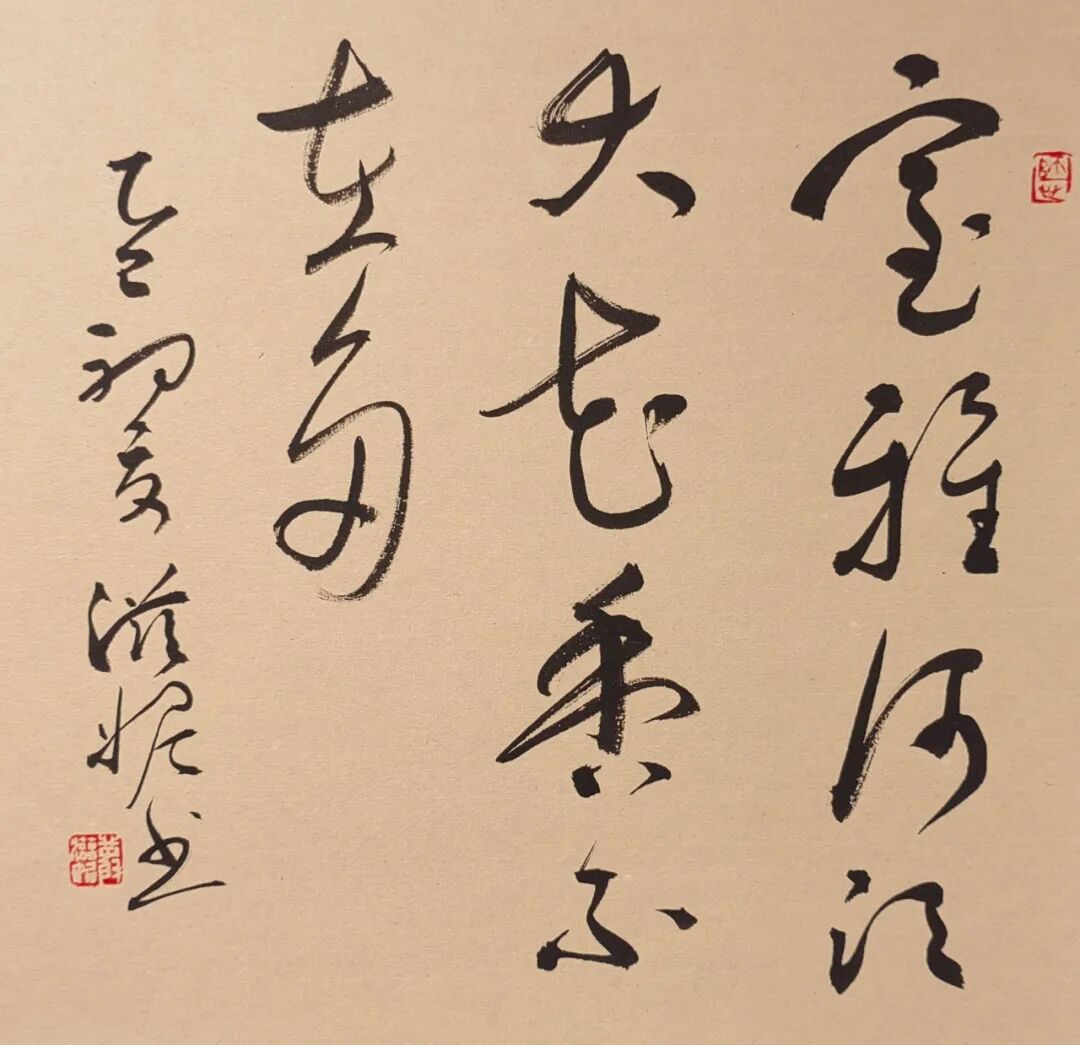 室雅何须
大花香不
在多
乙巳初夏滋妮书